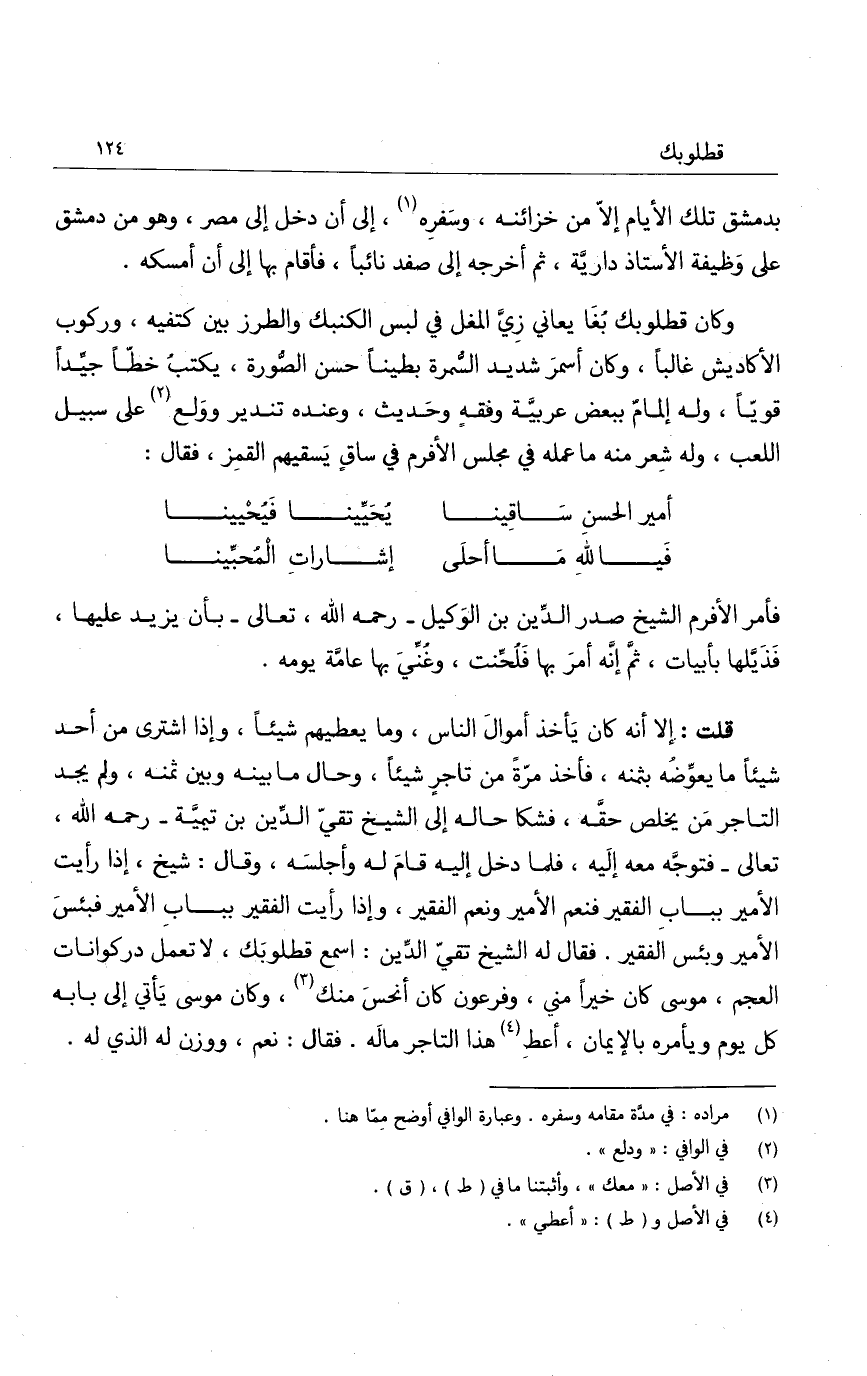 قطلوبك ١٢٤
بدمشق تلك الأيام إلاّ من خزائنـه ، وسَفرِه(١) ، إلى أن دخل إلى مصر ، وهو من دمشق
على وَظيفة الأستاذ داريَّة ، ثم أخرجه إلى صفد نائباً ، فأقام بها إلى أن أمسكه .
وكان قطلوبك بُغَا يعاني زيَّ المغل في لبس الكنبك والطرز بين كتفيه ، وركوب
الأكاديش غالباً ، وكان أسمرَ شديـد السُّمرة بطينـاً حسن الصُّورة ، يكتبُ خطّـاً جيِّـداً
قويّـاً ، ولـه إلمـامٌ ببعض عربيَّـة وفقـهٍ وحَـديث ، وعنـده تنـدير ووَلـع(٢) على سبيـل
اللعب ، وله شعر منه ما عمله في مجلس الأفرم في ساقٍ يَسقيهم القمز ، فقال :
أمير الحسنِ سَـــاقينـــا يُحَيِّينـــا فَيُحْيينـــا
فَيـــا للهِ مَـــا أحلَى إشـــاراتِ الْمُحبِّينـــا
فأمر الأفرم الشيخ صدر الـدِّين بن الوَكيل ـ رحمـه الله ، تعـالى ـ بـأن يزيـد عليهـا ،
فَذَيَّلها بأبيات ، ثمَّ إنَّه أمرَ بها فَلُحِّنت ، وغُنِّيَ بها عامَّة يومه .
قلت : إلا أنه كان يَأخذ أموالَ الناس ، وما يعطيهم شيئـاً ، وإذا اشترى من أحـد
شيئاً ما يعوِّضُه بثمنه ، فأخذ مرّةً من تاجرٍ شيئاً ، وحـال مـا بينـه وبين ثمنـه ، ولم يجـد
التـاجر مَن يخلص حقَّـه ، فشكا حـالـه إلى الشيـخ تقيّ الـدِّين بن تيميَّـة ـ رحمـه الله ،
تعالى ـ فتوجَّه معه إلَيه ، فلمـا دخل إليـه قـامَ لـه وأجلسَـه ، وقـال : شيخ ، إذا رأيت
الأمير ببـــابِ الفقير فنعم الأمير ونعم الفقير ، وإذا رأيت الفقير ببـــابِ الأمير فبئسَ
الأمير وبئس الفقير . فقال له الشيخ تقيّ الدِّين : اسمع قطلوبَك ، لا تعمل دركوانـات
العجم ، موسى كان خيراً مني ، وفرعون كان أنحسَ منك(٣) ، وكان موسى يَأتي إلى بـابـه
كل يوم ويأمره بالإيمان ، أعط(٤) هذا التاجر مالَه . فقال : نعم ، ووزن له الذي له .
(١) مراده : في مدَّة مقامه وسفره . وعبارة الوافي أوضح ممّا هنا .
(٢) في الوافي : « ودلع » .
(٣) في الأصل : « معك » ، وأثبتنا ما في ( ط ) ، ( ق ) .
(٤) في الأصل و ( ط ) : « أعطي » .